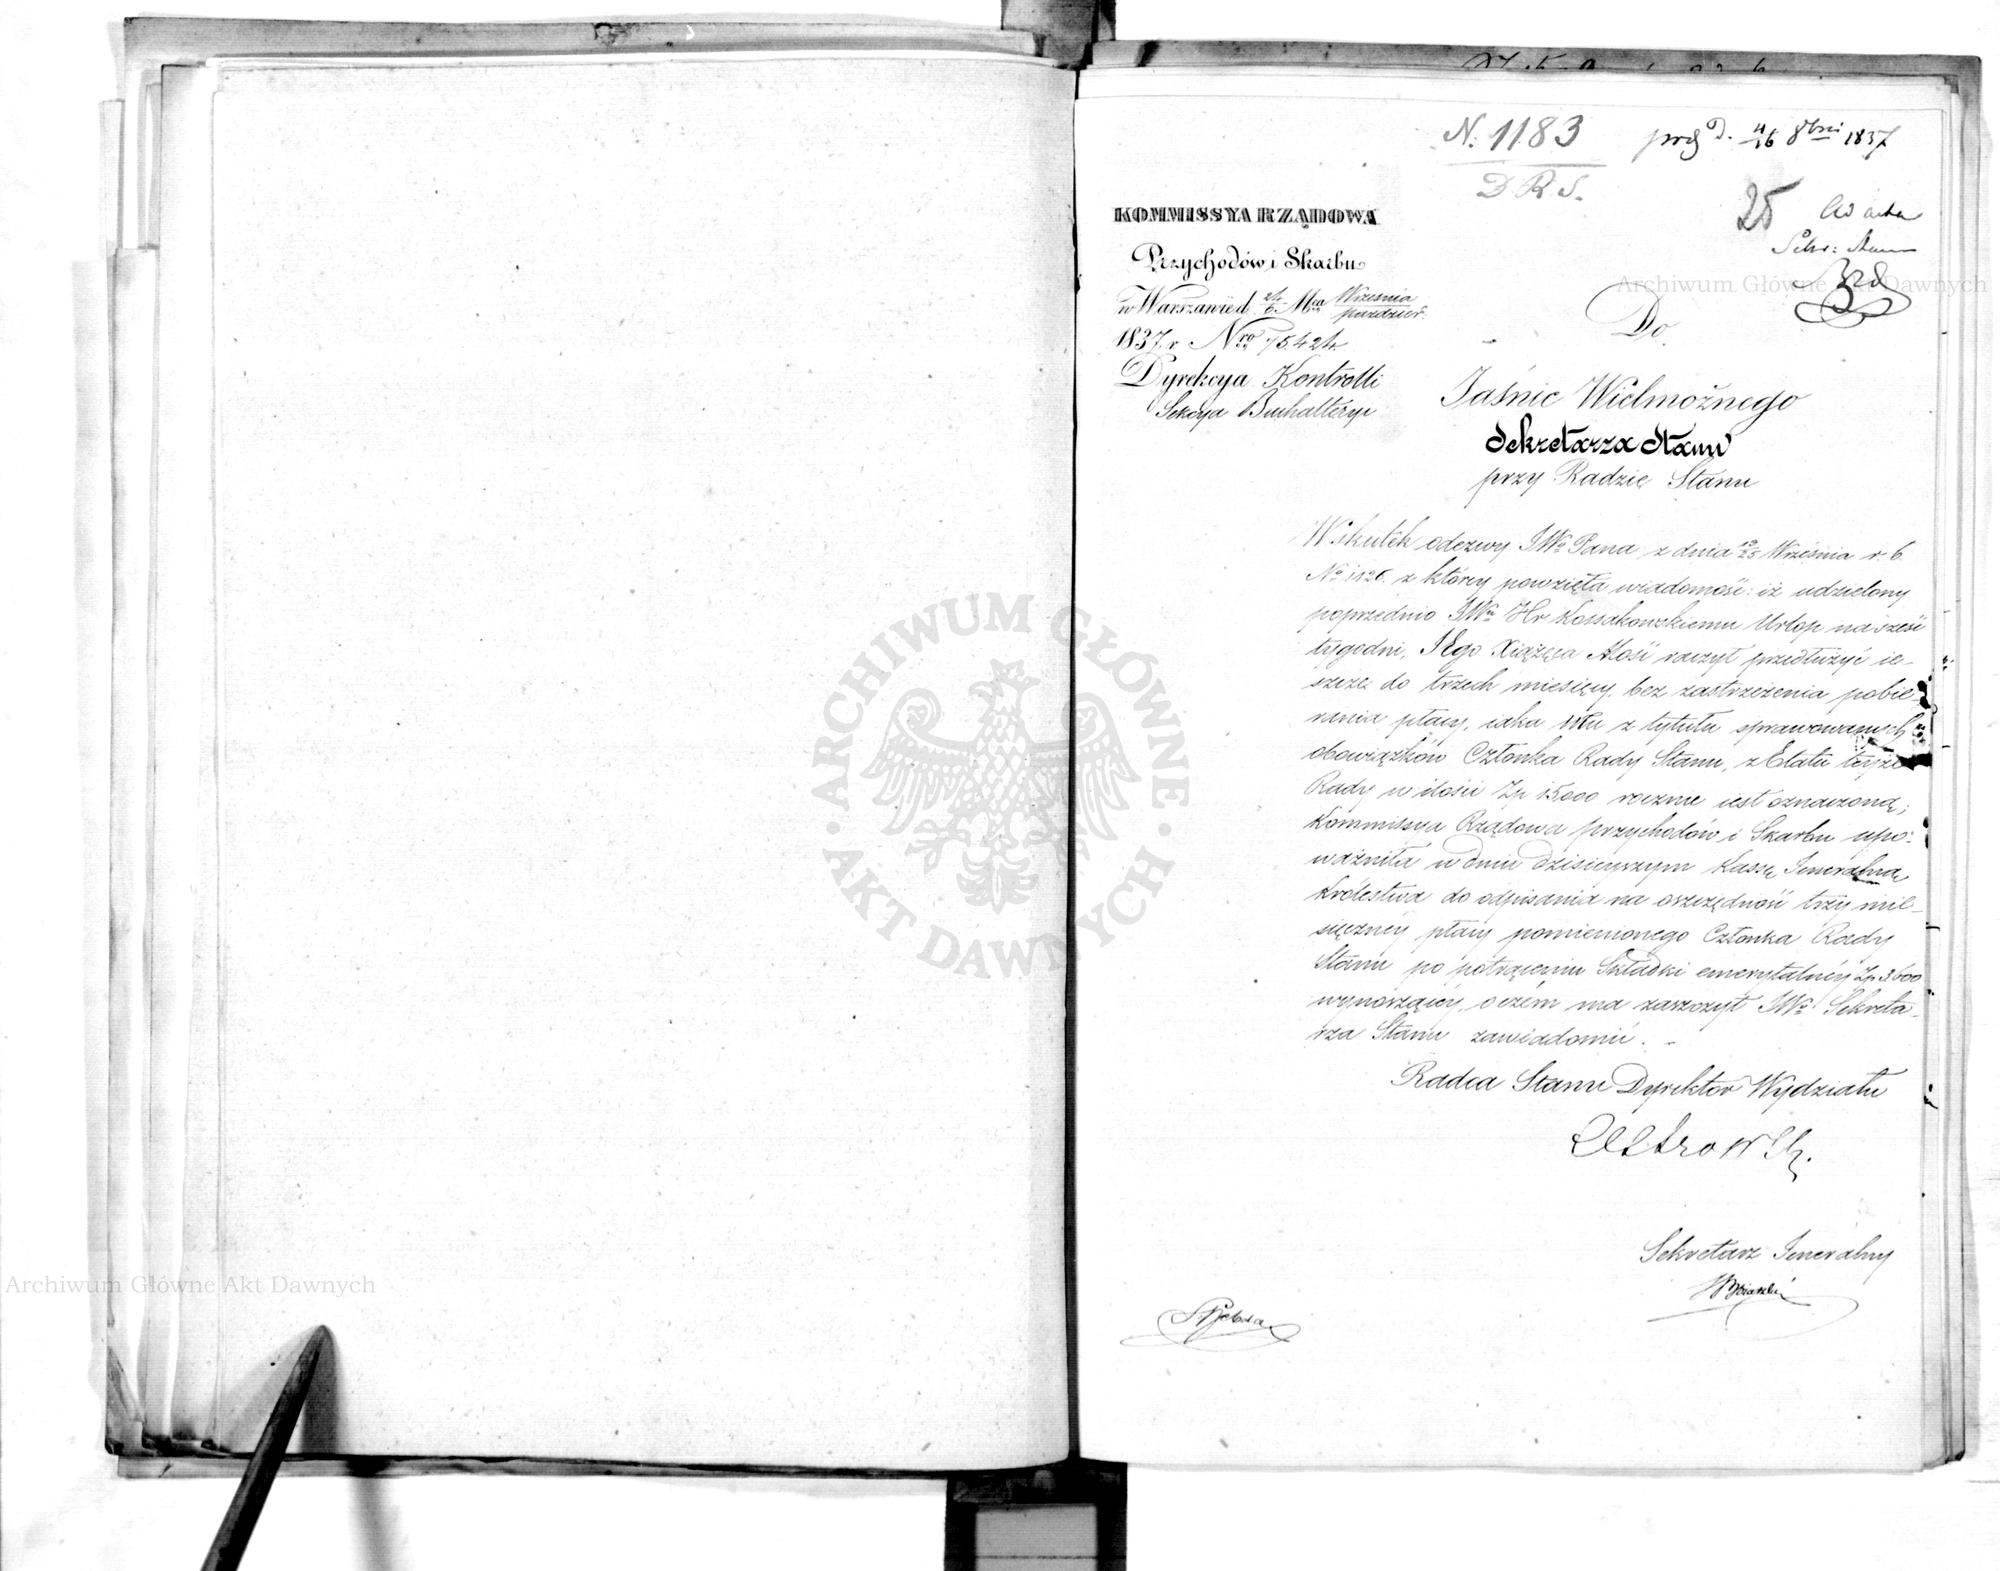 N. 1183
D R S.
d. 4/16 8bri 1837
25
Ad acta
Sekr: Stanu
KOMMISSYA RZĄDOWA
Przychodów i Skarbu
w Warszawie d. 24/6 Mca Września/paździer.
1837. r. Nro 75.424.
Dyrekcya Kontrolli
Sekcya Buchalteryi
Do
Jaśnie Wielmożnego
Sekretarza Stanu
przy Radzie Stanu
Wskutek odezwy JWo Pana z dnia 13/25 Września r. b.
No 1126. z któréy powzięła wiadomość: iż udzielony
poprzednio JWu Hr Kossakowskiemu Urlop na sześć
tygodni, JEgo Xiążęca Mość raczył przedłużyć ie-
szcze do trzech miesięcy, bez zastrzeżenia pobie-
rania płacy, iaka Mu z tytułu sprawowanych
obowiązków Członka Rady Stanu, z Etatu teyże
Rady w ilości Zp 15000 rocznie iest oznaczoną;
Kommissya Rządowa przychodów i Skarbu upo-
ważniła w dniu dzisieyszym Kassę Jeneralną
Królestwa do odpisania na oszczędność trzy mie-
sięcznéy płacy pomienionego Członka Rady
Stanu po potrąceniu Składki emerytalnéy Zp 3600
wynoszącéy, o czém ma zaszczyt JWo Sekreta-
rza Stanu zawiadomić.
Radca Stanu Dyrektor Wydziału
Sekretarz Jeneralny
ARCHIWUM GŁÓWNE AKT DAWNYCH
Archiwum Główne Akt Dawnych
Archiwum Główne Akt Dawnych